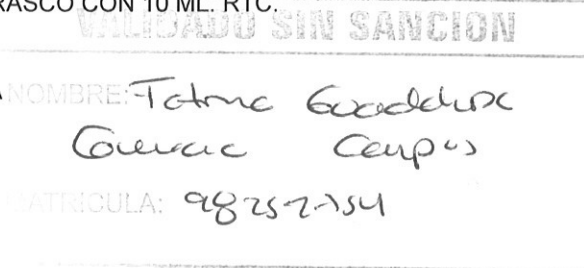 FRASCO CON 10 ML. RTC.
VALIDADO SIN SANCION
NOMBRE: Guadalupe
Campos
MATRICULA: 98252754